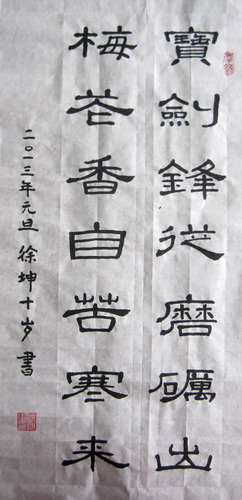 寶劍鋒从磨礪出
梅花香自苦寒来
二〇一三年元旦 徐坤十岁書